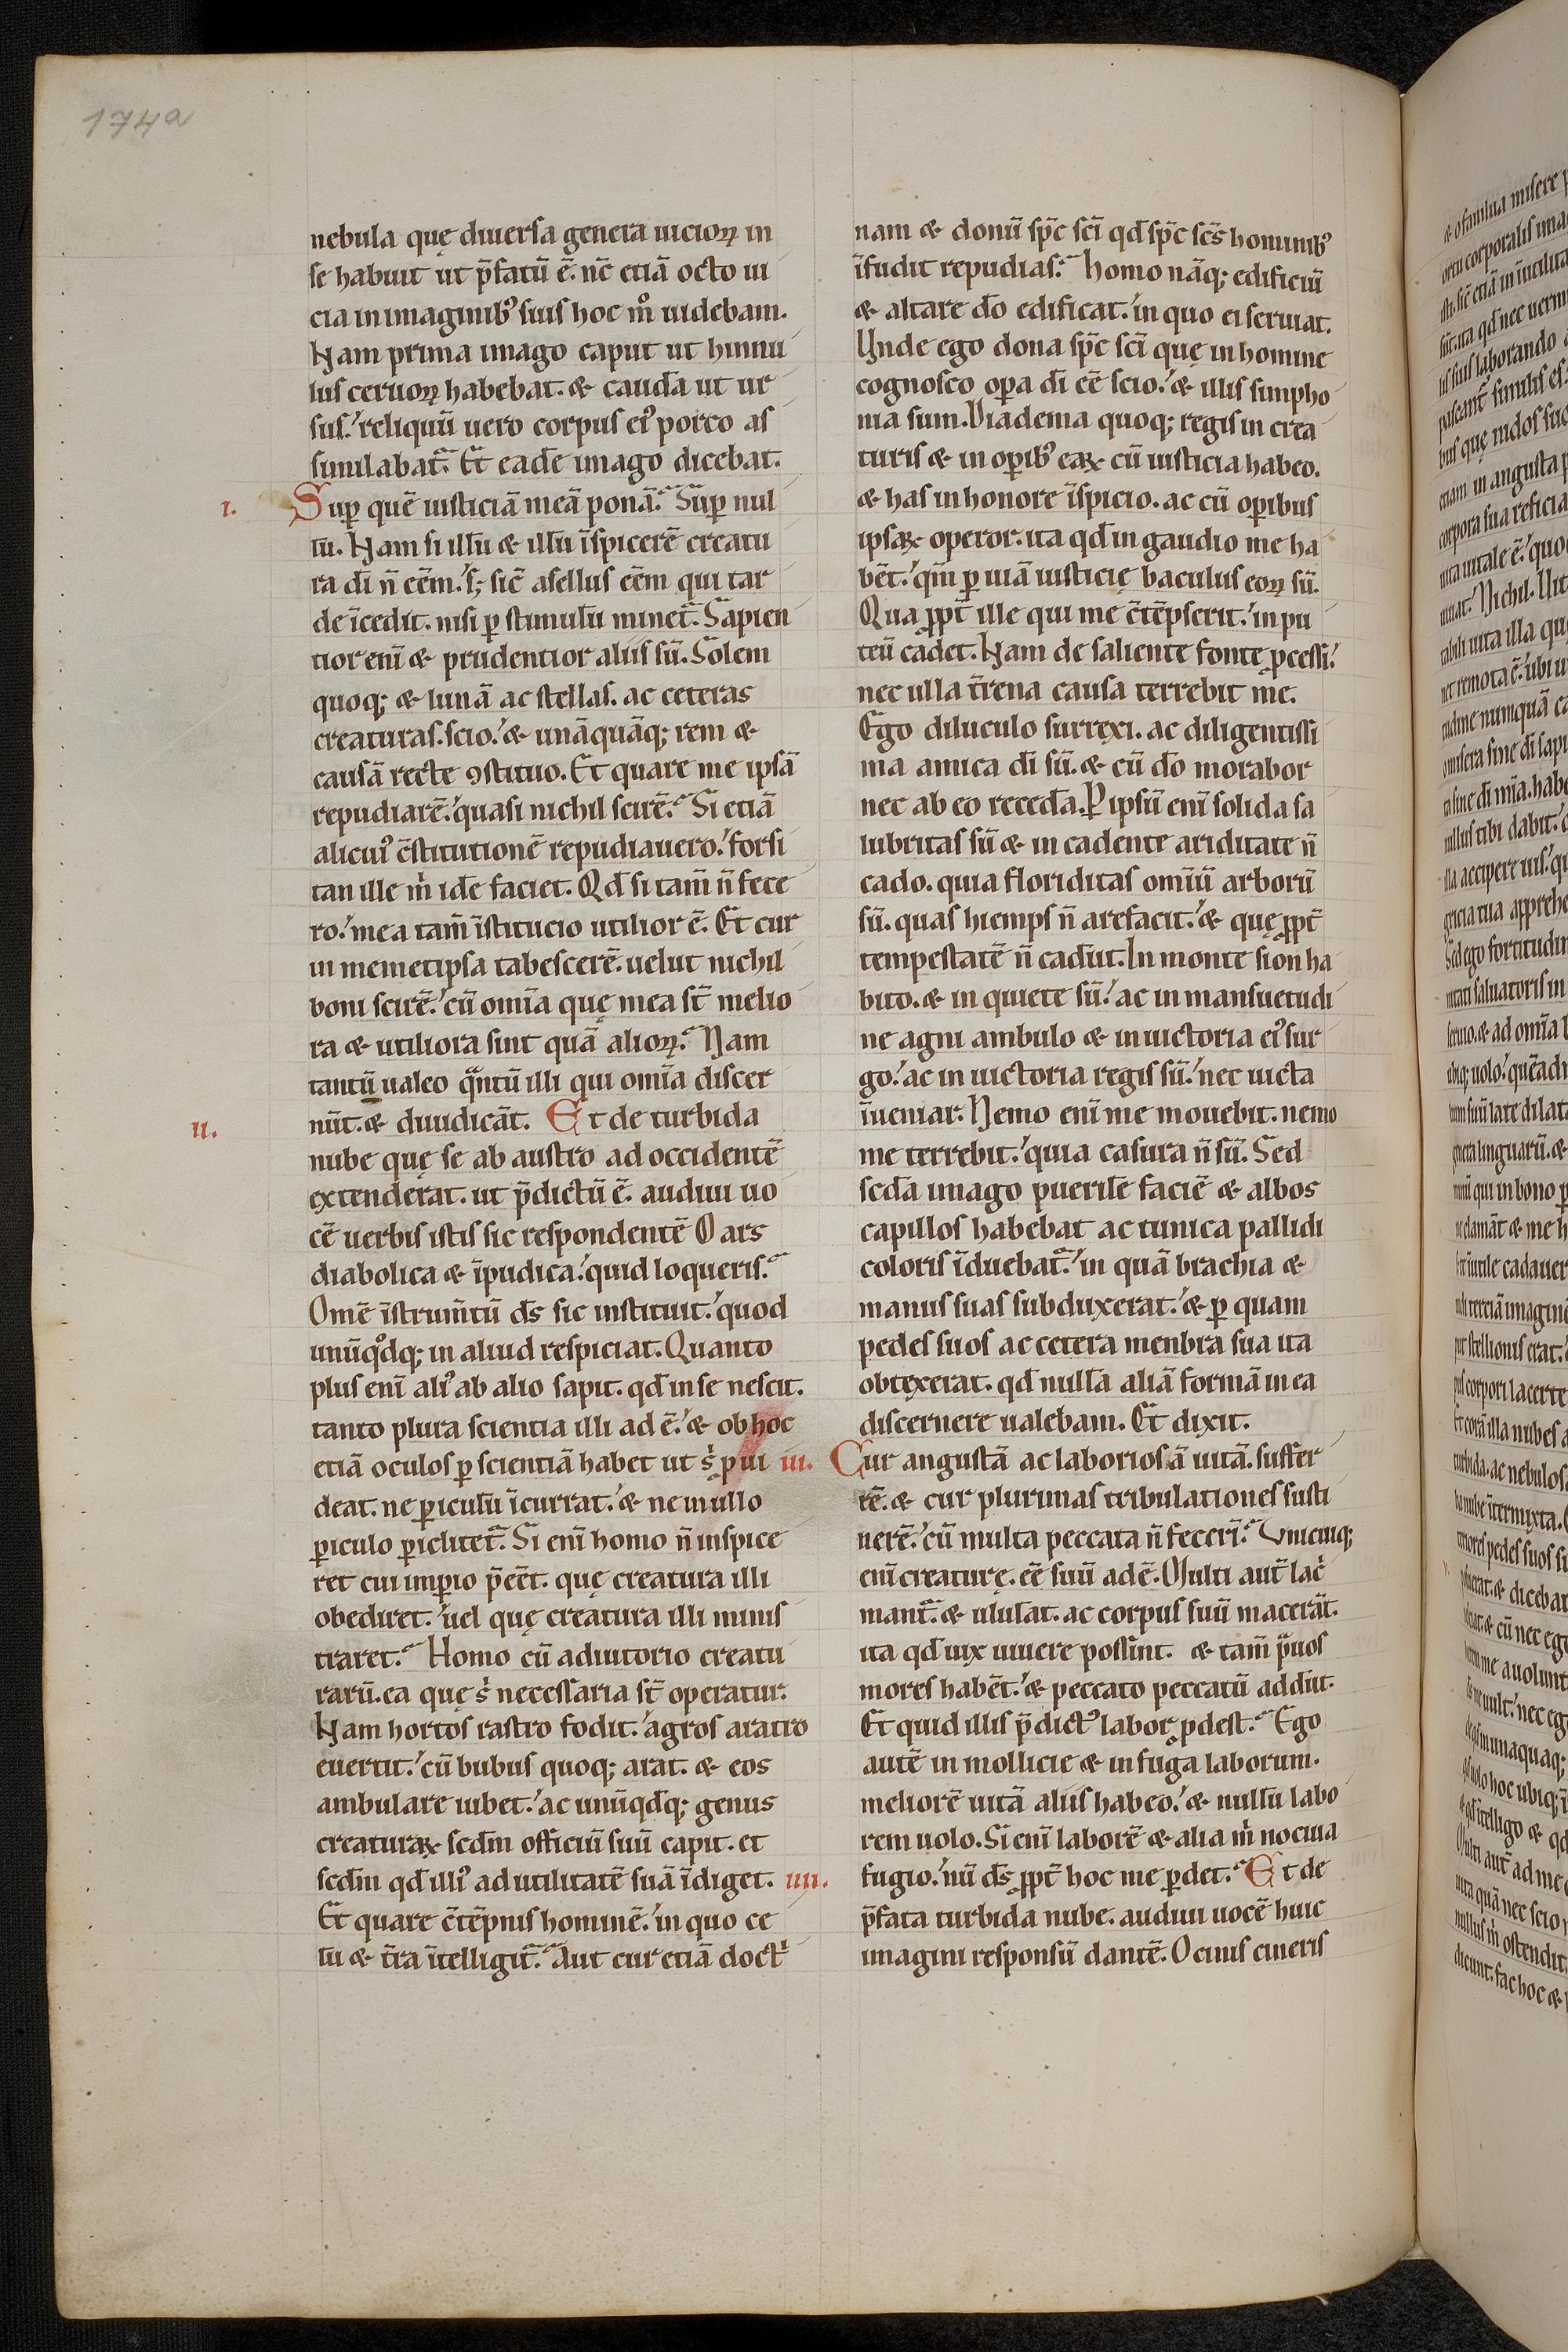 174a
nebula quę diuersa genera uicioꝝ in
se habuit ut p̄fatū ē. nc̄ etiā octo ui
cia in imaginibꝰ suis hoc m̊ uidebam.
Nam prima imago caput ut hinnu
lus ceruoꝝ habebat. & cauda ut ur
sus. reliquū uero corpus eiꝰ porco as
similabat᷑. Et eadē imago dicebat.
i. Suꝑ quē iusticiā meā ponā. Suꝑ nul
lū. Nam si illū & illū īspicerē creatu
ra dī n̄ eēm. sꝫ sic̄ asellus eēm qui tar
de īcedit. nisi ꝑ stimulū minet᷑. Sapien
tior enī & prudentior aliis sū. Solem
quoqꝫ & lunā ac stellas. ac ceteras
creaturas. scio. & unāquāqꝫ rem &
causā recte ꝯstituo. Et quare me ipsā
repudiarē. quasi nichil scirē. Si etiā
alicuiꝰ c̄stitutionē repudiauero. forsi
tan ille m̍ idē faciet. Qd̄ si tam̄ n̄ fece
ro. mea tam̄ īstitucio utilior ē. Et cur
in memetipsa tabescerē. uelut nichil
boni scirē. cū omīa quę mea st̄ melio
ra & utiliora sint quā alioꝝ. Nam
tantū ualeo qᵃntū illi qui omīa discer
nūt. & diiudicāt. ii. Et de turbida
nube quę se ab austro ad occidentē
extenderat. ut p̄dictū ē. audiui uo
cē uerbis istis sic respondentē O ars
diabolica & īpudica. quid loqueris.
Omē īstrum̄tū ds̄ sic instituit. quod
unūqͦdqꝫ in aliud respiciat. Quanto
plus enī aliꝰ ab alio sapit. qd̄ in se nescit.
tanto plura scientia illi ad ē. & ob hoc
etiā oculos ꝑ scientiā habet ut s̍ ꝓui
deat. ne ꝑiculū īcurrat. & ne in ullo
ꝑiculo ꝑiclitet᷑. Si enī homo n̄ inspice
ret cui imꝑio p̄eēt. quę creatura illi
obediret. uel quę creatura illi minis
traret. Homo cū adiutorio creatu
rarū. ea quę s̍ necessaria st̄ operatur.
Nam hortos rastro fodit. agros aratro
euertit. cū bubus quoqꝫ arat. & eos
ambulare iubet. ac unūqd̄qꝫ genus
creaturaꝝ scdm̄ officiū suū capit. et
scdm̄ qd̄ illiꝰ ad utilitatē suā īdiget.
Et quare c̄tēpnis hominē. in quo ce
lū & t̄ra ītelligit᷑. Aut cur etiā doctⁱ
nam & donū sp̄c sc̄i qd̄ sp̄c sc̄s hominibꝰ
īfudit repudias. Homo nāqꝫ edificiū
& altare dō edificat. in quo ei seruiat.
Unde ego dona sp̄c sc̄i quę in homine
cognosco oꝑa dī eē scio. & illis simpho
nia sum. Diadema quoqꝫ regis in crea
turis & in oꝑibꝰ eaꝝ cū iusticia habeo.
& has in honore īspicio. ac cū oꝑibus
ipsaꝝ operor. ita qd̄ in gaudio me ha
bēt. qm̄ ꝑ uiā iusticię baculus eoꝝ sū.
Qua ꝓpt̄ ille qui me c̄tēpserit. in pu
teū cadet. Nam de saliente fonte ꝓcessi.
nec ulla t̄rena causa terrebit me.
Ego diluculo surrexi. ac diligentissi
ma amica dī sū. & cū dō morabor
nec ab eo recedā. Ꝑ ipsū enī solida sa
lubritas sū & in cadente ariditate n̄
cado. quia floriditas omīū arborū
sū. quas hiemps n̄ arefacit. & quę ꝓpt̄
tempestatē n̄ cadūt. In monte sion ha
bito. & in quiete sū. ac in mansuetudi
ne agni ambulo & in uictoria eiꝰ sur
go. ac in uictoria regis sū. nec uicta
īueniar. Nemo enī me mouebit. nemo
me terrebit. quia casura n̄ sū. Sed
scda imago puerilē faciē & albos
capillos habebat ac tunica pallidi
coloris īduebat᷑. in quā brachia &
manus suas subduxerat. & ꝑ quam
pedes suos ac cetera menbra sua ita
obtexerat. qd̄ nullā aliā formā in ea
discernere ualebam. Et dixit.
iii. Cur angustā ac laboriosā uitā. suffer
rē. & cur plurimas tribulationes susti
nerē. cū multa peccata n̄ fecerī. Unicuiqꝫ
enī creaturę. eē suū ad ē. Multi aut̄ lacⁱ
mant᷑. & ululāt. ac corpus suū macerāt.
ita qd̄ uix uiuere possint. & tam̄ pᵃuos
mores habēt. & peccato peccatū addūt.
Et quid illis p̄dictꝰ labor ꝓdest. Ego
autē in mollicie & in fuga laborum.
meliorē uitā aliis habeo. & nullū labo
rem uolo. Si enī laborē & alia m̍ nociua
fugio. nū ds̄ ꝓpt̄ hoc me ꝑdet. iiii. Et de
p̄fata turbida nube. audiui uocē huic
imagini responsū dantē. O cinis cineris